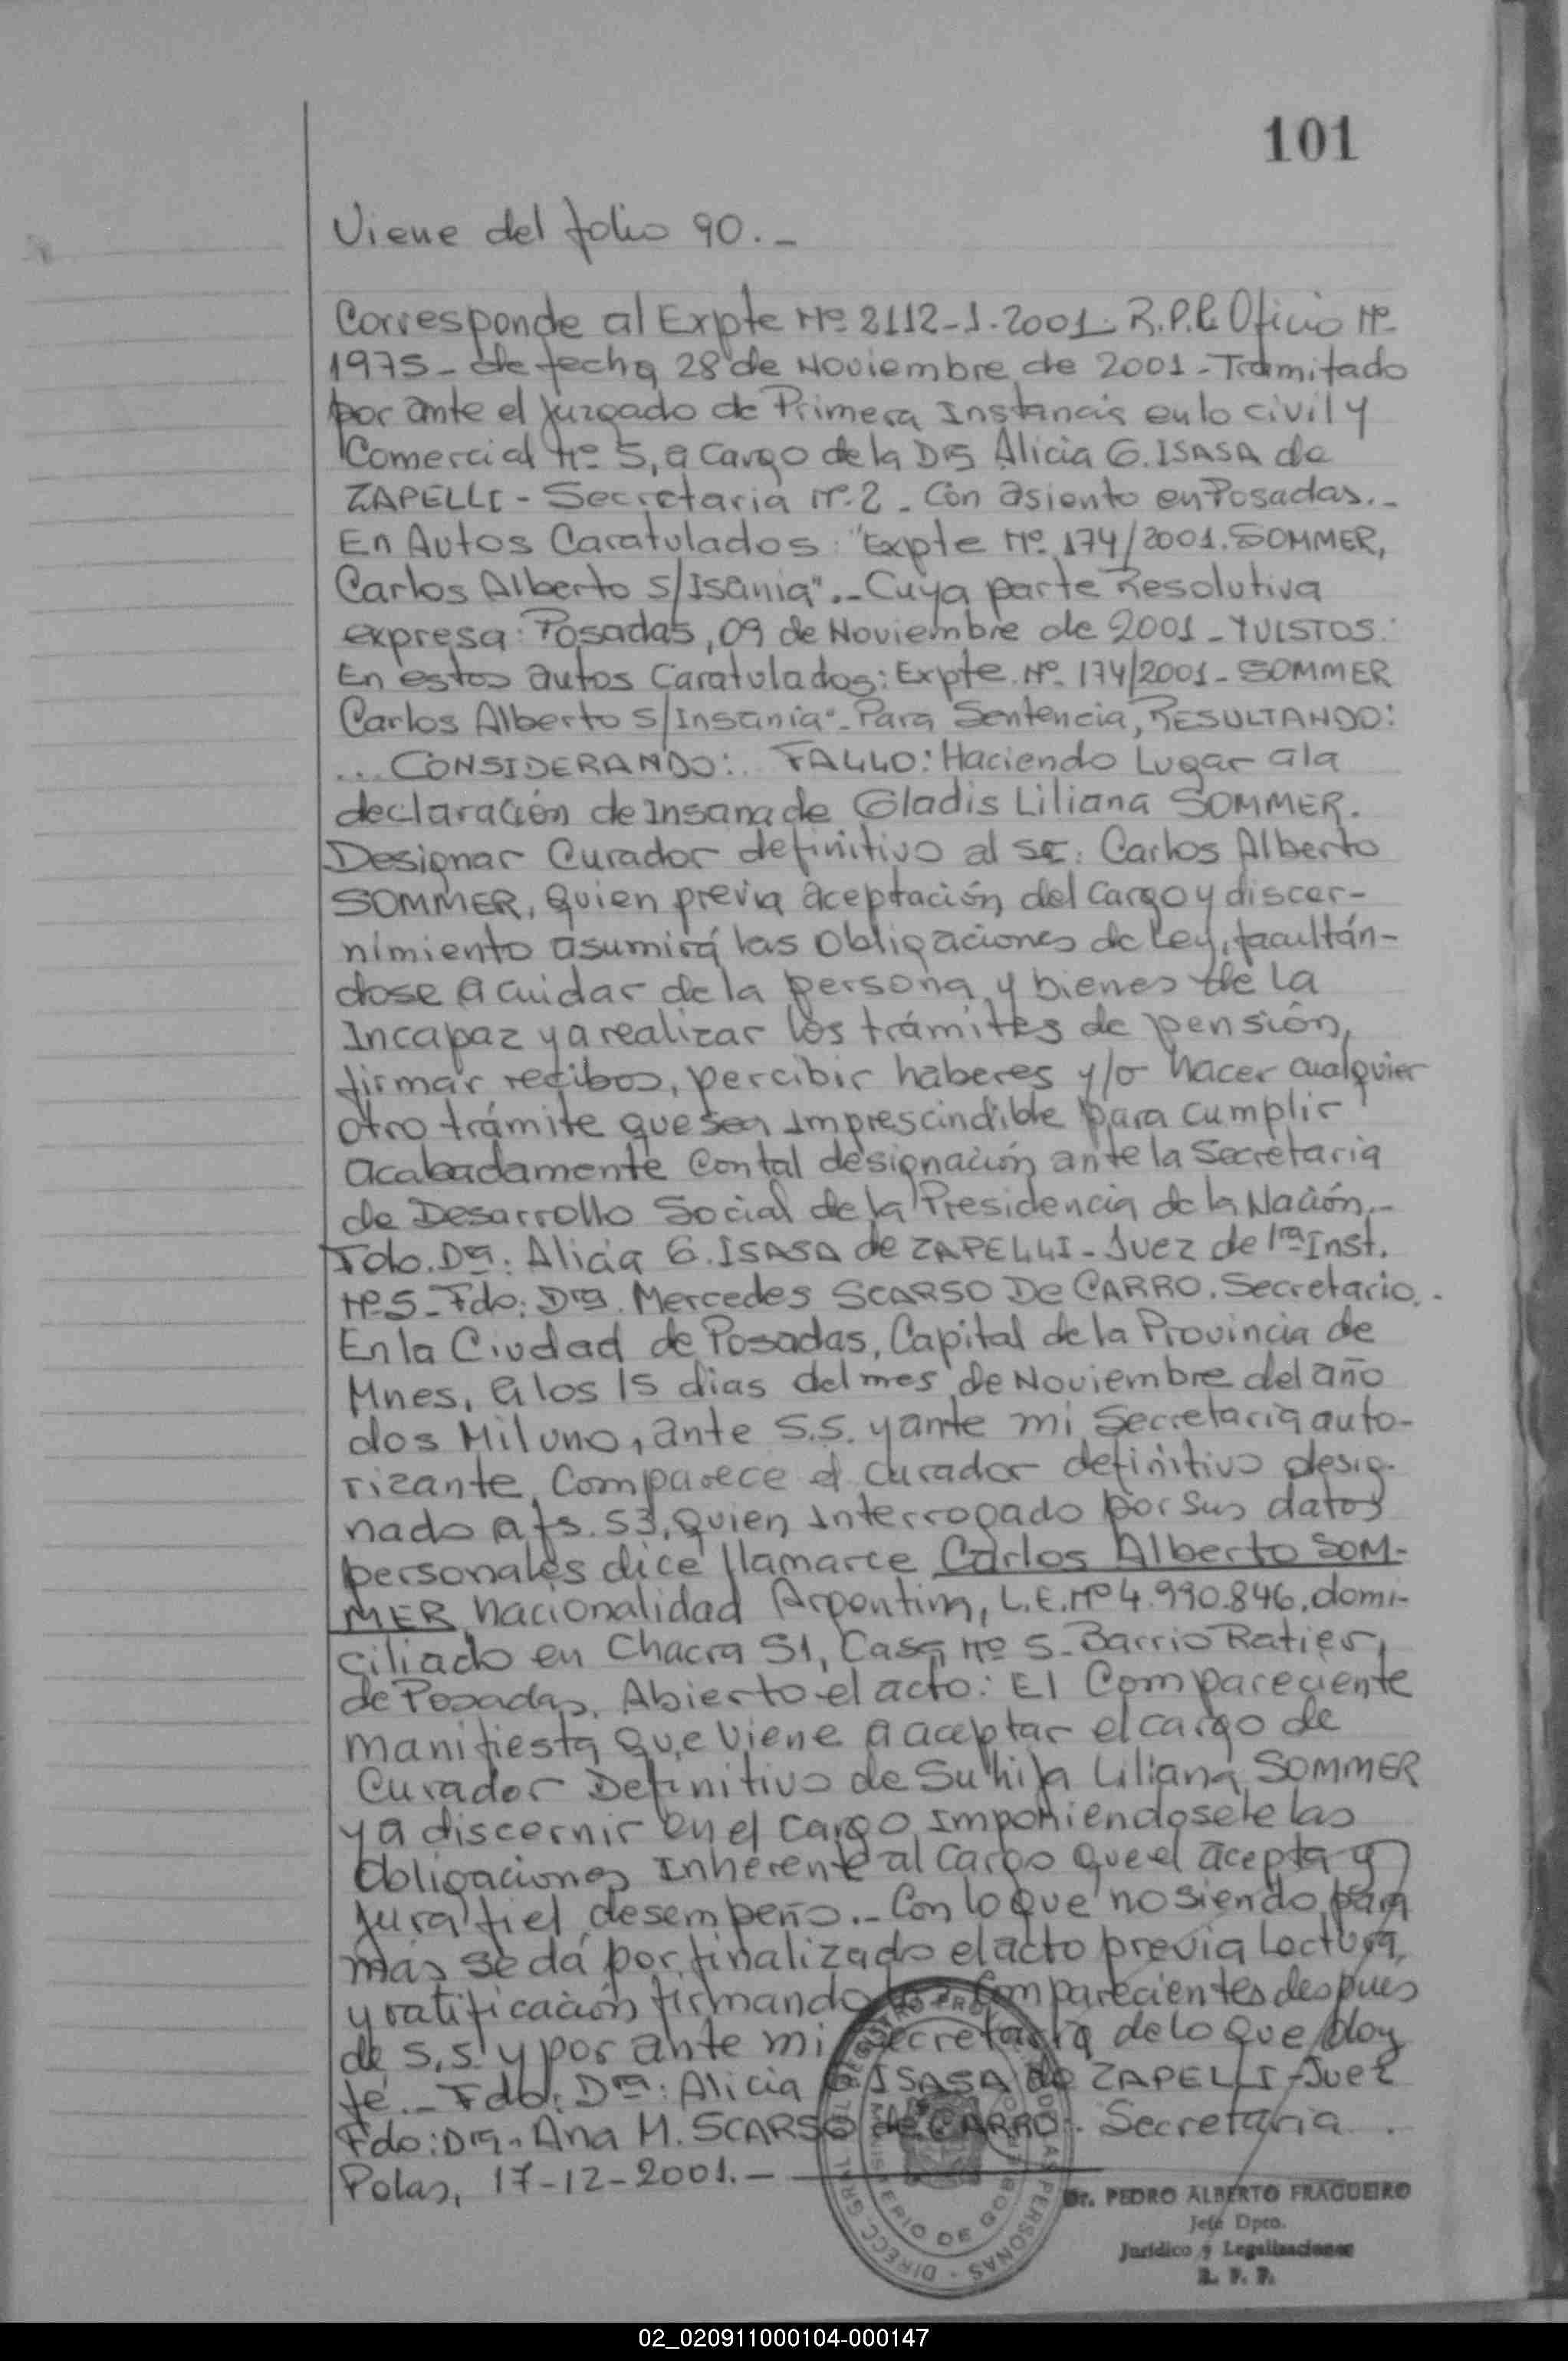 101
Viene del folio 90. -
Corresponde al Expte Nº 2112-1-2001. R.P.P. Oficio Nº
1975 - de fecha 28 de Noviembre de 2001 - Tramitado
por ante el Juzgado de Primera Instancia en lo civil y
Comercial Nº 5, a Cargo de la Dra Alicia G. ISASA de
ZAPELLI - Secretaria Nº 2 - Con asiento en Posadas. -
En Autos Caratulados: "Expte Nº 174/2001. SOMMER,
Carlos Alberto S/Isania". - Cuya parte Resolutiva
expresa: Posadas, 09 de Noviembre de 2001 - YVISTOS:
En estos autos Caratulados: Expte. Nº 174/2001 - SOMMER
Carlos Alberto S/Insania" - Para Sentencia, RESULTANDO:
... CONSIDERANDO:. FALLO: Haciendo Lugar a la
declaración de Insana de Gladis Liliana SOMMER.
Designar Curador definitivo al Sr: Carlos Alberto
SOMMER, quien previa aceptación del Cargo y discer-
nimiento asumirá las obligaciones de Ley, facultán-
dose a cuidar de la persona y bienes de la
Incapaz y a realizar los trámites de pensión,
firmar recibos, percibir haberes y/o hacer cualquier
otro trámite que sea imprescindible para cumplir
acabadamente con tal designación ante la Secretaria
de Desarrollo Social de la Presidencia de la Nación. -
Fdo. Dra: Alicia G. ISASA de ZAPELLI - Juez de 1ra Inst.
Nº 5 - Fdo: Dra. Mercedes SCARSO De CARRO. Secretario. -
En la Ciudad de Posadas, Capital de la Provincia de
Mnes, a los 15 dias del mes de Noviembre del año
dos Mil uno, ante S.S. y ante mi Secretaria auto-
rizante, Comparece el curador definitivo desig-
nado a fs. 53, quien interrogado por sus datos
personales dice llamarce Carlos Alberto SOM-
MER nacionalidad Argentina, L.E. Nº 4.990.846, domi-
ciliado en Chacra 51, Casa Nº 5 - Barrio Ratier,
de Posadas. Abierto el acto: El Compareciente
manifiesta que viene a aceptar el cargo de
Curador Definitivo de Su hija Liliana SOMMER
y a discernir en el cargo imponiendosele las
obligaciones inherente al cargo que el acepta y
jura fiel desempeño. - Con lo que no siendo para
más se dá por finalizado el acto previa Lectura,
y ratificación firmando los Comparecientes despues
de S.S. y por ante mi Secretaria de lo que doy
fé. - Fdo: Dra: Alicia G. ISASA de ZAPELLI - Juez
Fdo: Dra. Ana M. SCARSO de CARRO. Secretaria.
Pdas, 17-12-2001. -
Dr. PEDRO ALBERTO FRAGUEIRO
Jefe Dpto.
Jurídico y Legalizaciones
R. P. P.
02_020911000104-000147